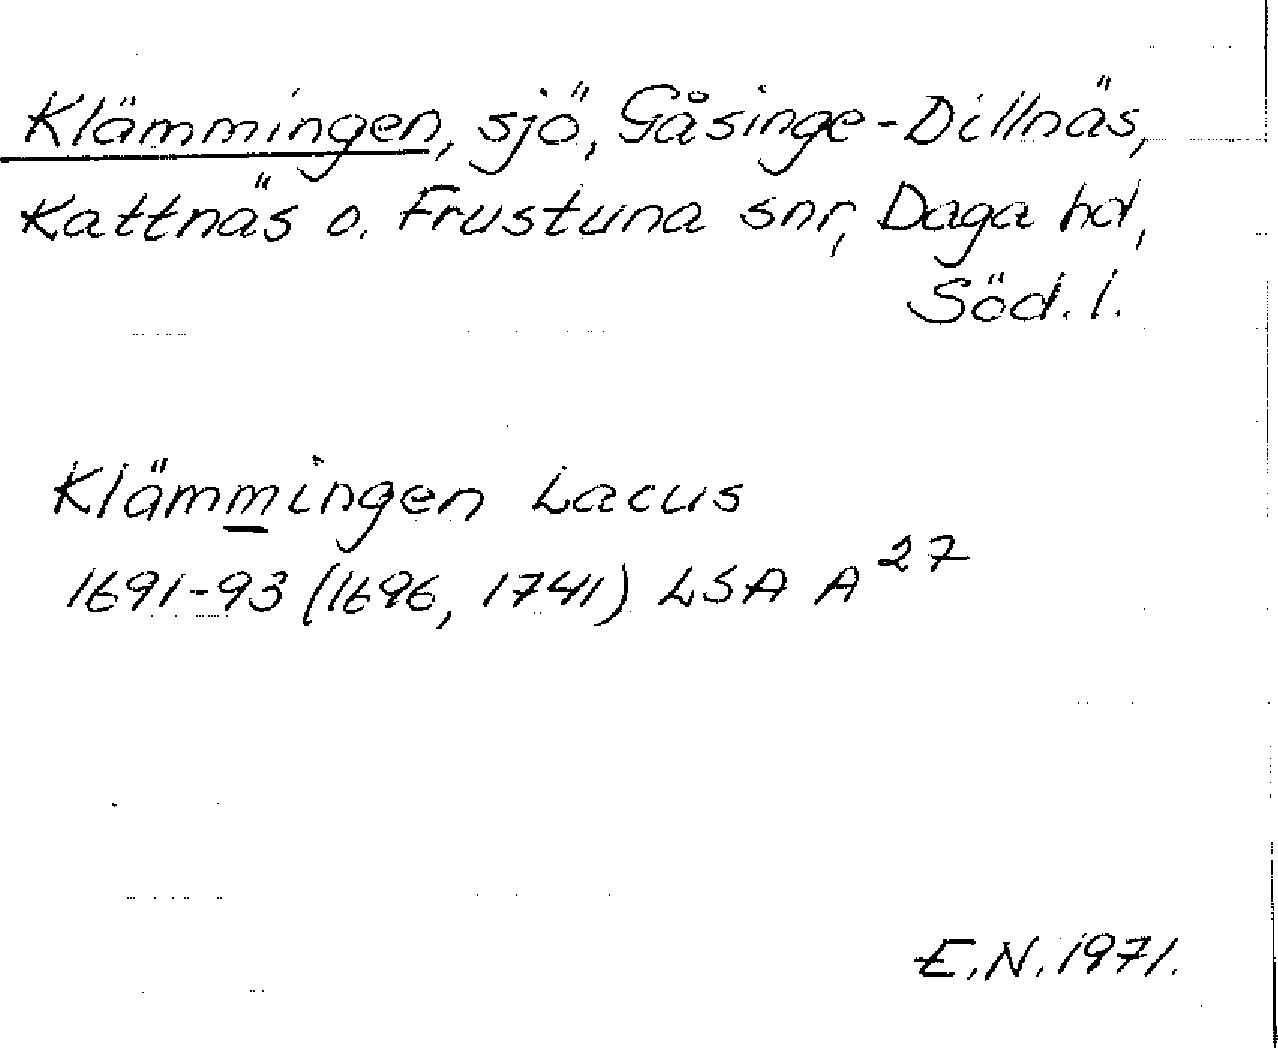 Klämmingen, sjö, Gåsinge-Dillnäs,
Kattnäs o. Frustuna snr, Daga hd,
Söd. l.
Klämmingen Lacus
1691-93 (1696, 1741) LSA A 27
E.N. 1971.